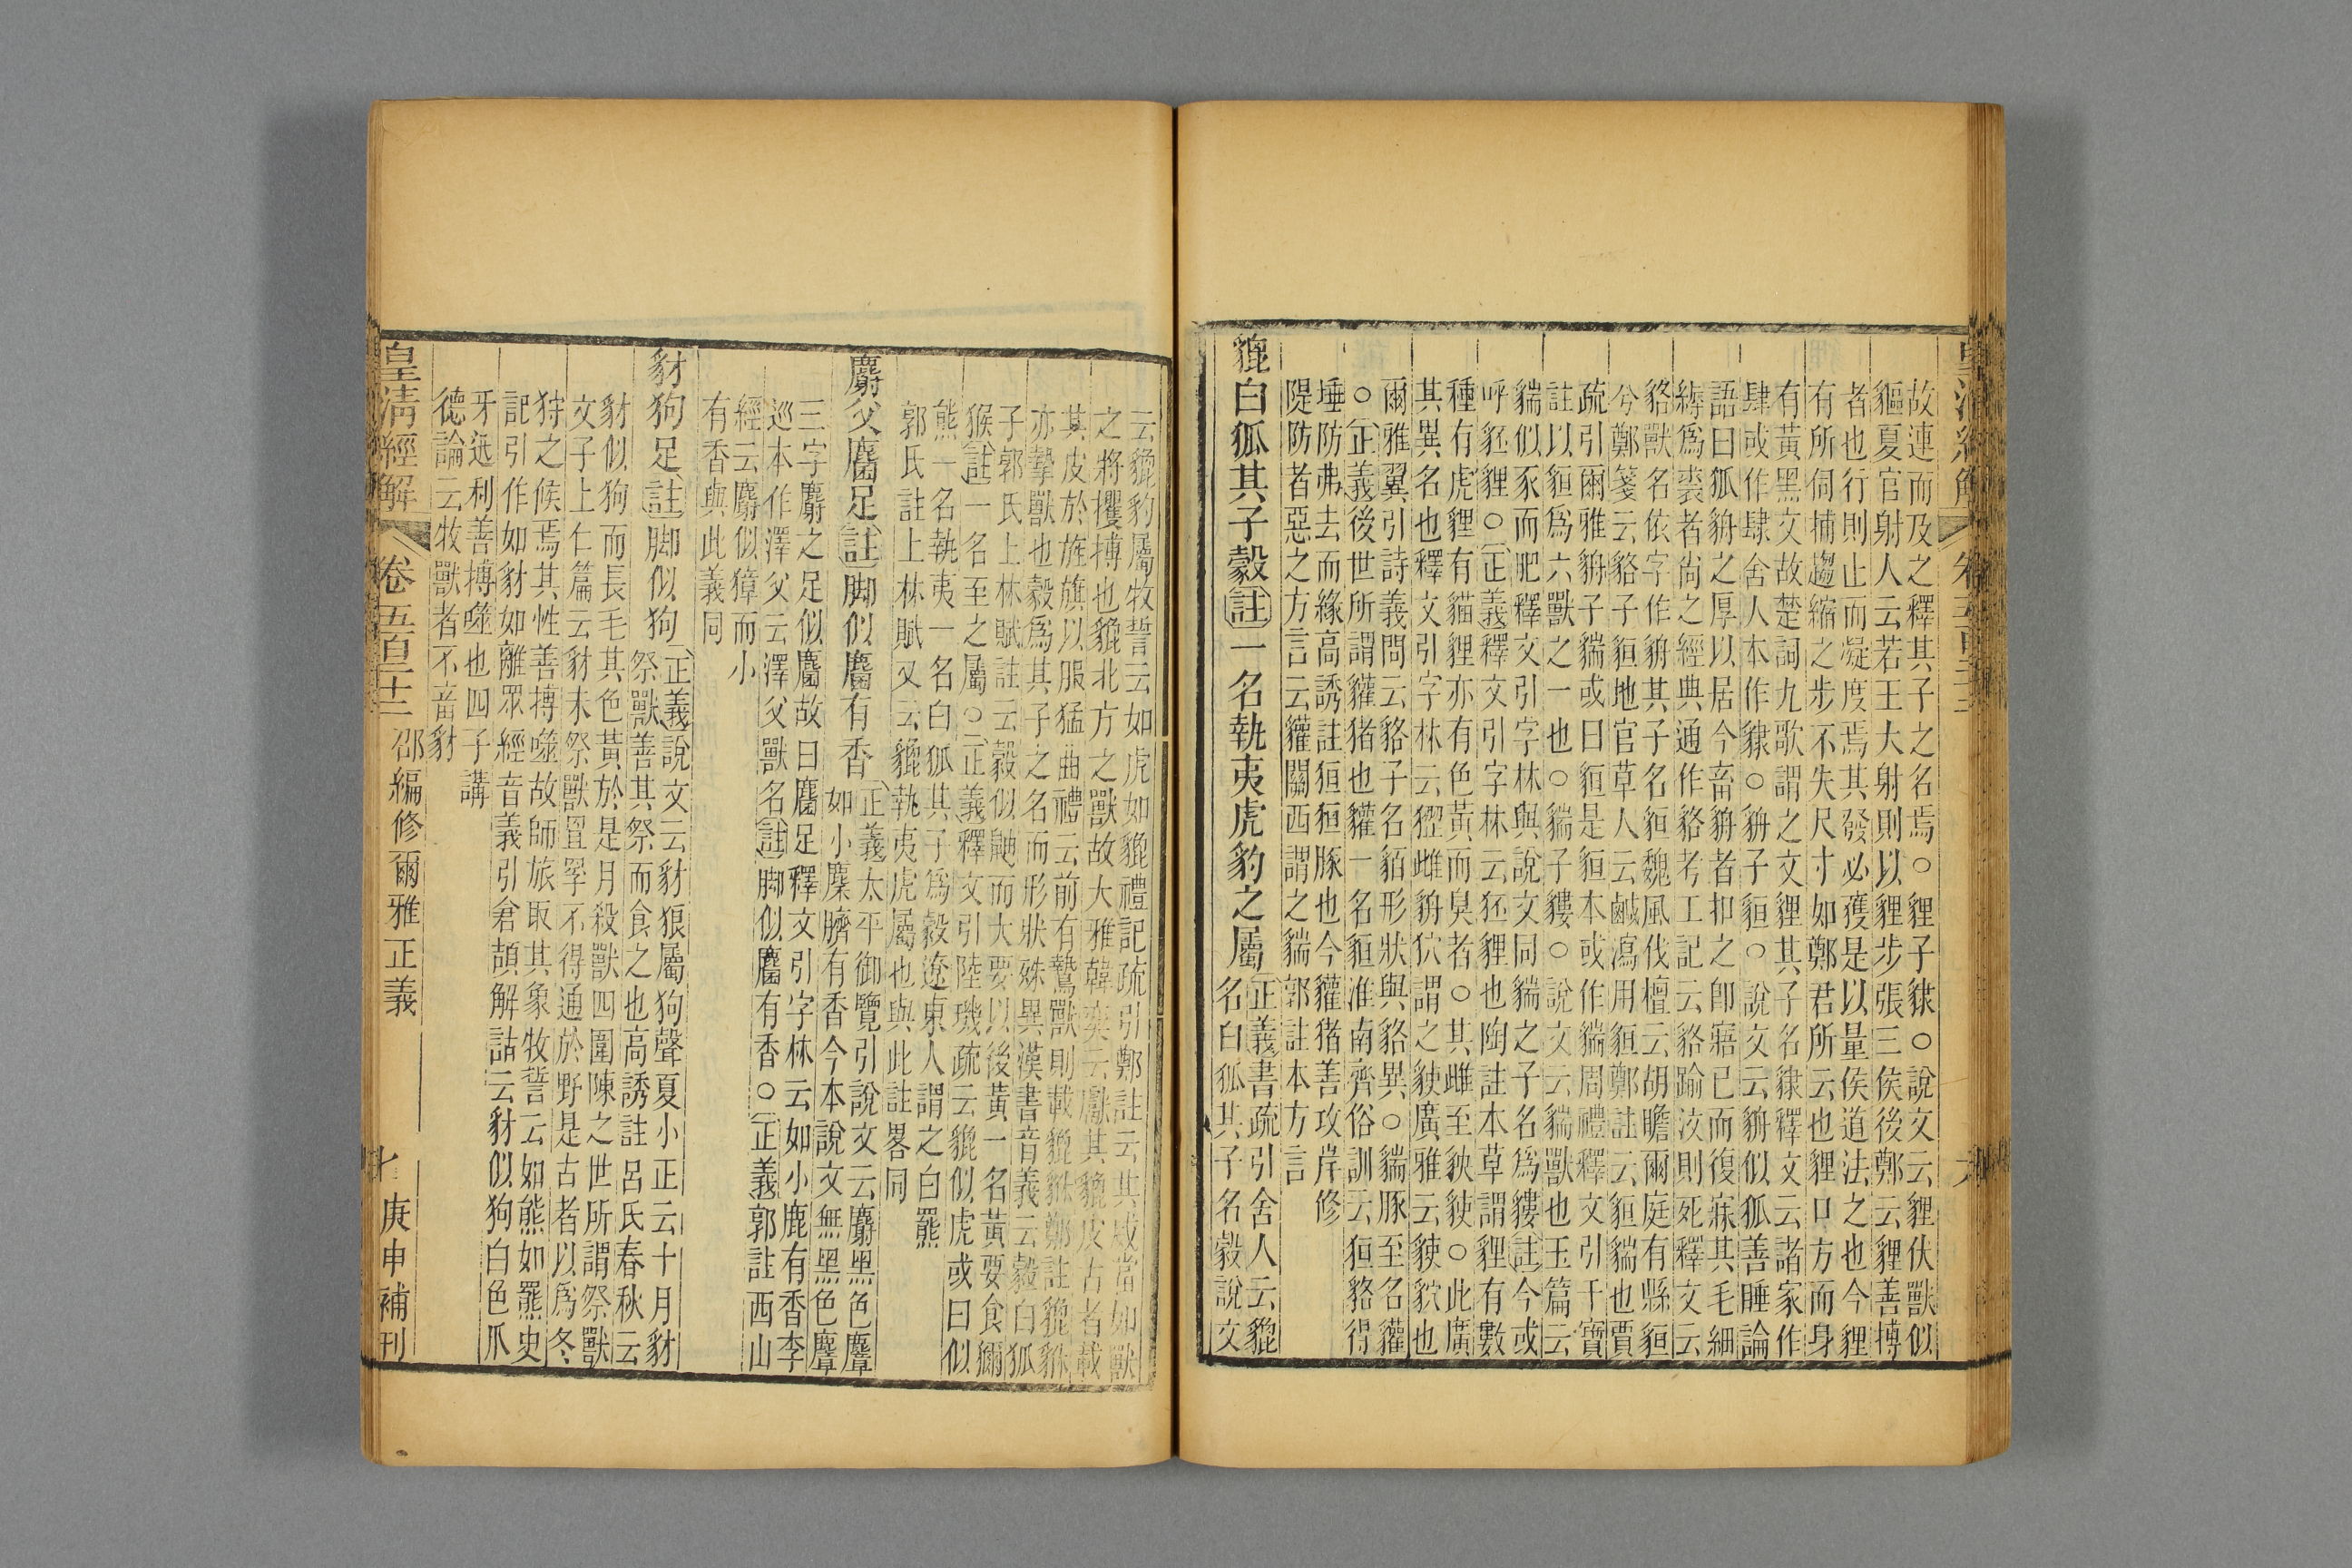 皇清經解 卷五百二十二 六
故連而及之釋其子之名焉○貍子貄○說文云貍伏獸似
貙夏官射人云若王大射則以貍步張三侯後鄭云貍善搏
者也行則止而凝度焉其發必獲是以量侯道法之也今貍
有所伺捕趨縮之步不失尺寸如鄭君所云也貍口方而身
有黃黑文故楚詞九歌謂之文貍其子名貄釋文云諸家作
肆或作肆舍人本作貄○貈子貆○說文云貈似狐善睡論
語曰狐貈之厚以居今畜貈者扣之卽寤已而復寐其毛細
縟爲裘者尚之經典通作貉考工記云貉踰汶則死釋文云
貉獸名依字作貈其子名貆魏風伐檀云胡瞻爾庭有縣貆
兮鄭箋云貉子貆地官草人云鹹瀉用貆鄭註云貆貒也賈
疏引爾雅貈子貒或曰貆是貆本或作貒周禮釋文引干寶
註以貆爲六獸之一也○貒子貗○說文云貒獸也玉篇云
貒似豕而肥釋文引字林與說文同貒之子名爲貗註今或
呼豾貍○正義釋文引字林云豾貍也陶註本草謂貍有數
種有虎貍有貓貍亦有色黃而臭者○其雌至貁䝘○此廣
其異名也釋文引字林云貚雌貈狖謂之䝘廣雅云䝘貁也
爾雅翼引詩義問云貉子名貊形狀與貉異○貒豚至名貛
○正義後世所謂貛猪也貛一名貆淮南齊俗訓云狟貉得
埵防弗去而緣高誘註狟狟豚也今貛猪善攻岸修
隄防者惡之方言云貛關西謂之貒郭註本方言
貔白狐其子縠註一名執夷虎豹之屬正義書疏引舍人云貔
名白狐其子名縠說文
云貔豹屬牧誓云如虎如貔禮記疏引鄭註云其威當如獸
之將攫搏也貔北方之獸故大雅韓奕云獻其貔皮古者載
其皮於旌旗以服猛曲禮云前有鷙獸則載貔貅鄭註貔貅
亦摯獸也縠爲其子之名而形狀殊異漢書音義云縠白狐
子郭氏上林賦註云縠似鼬而大要以後黃一名黃要食獼
猴註一名至之屬○正義釋文引陸璣疏云貔似虎或曰似
熊一名執夷一名白狐其子爲縠遼東人謂之白羆
郭氏註上林賦又云貔執夷虎屬也與此註畧同
麝父麕足註脚似麕有香正義太平御覽引說文云麝黑色麞
如小麋臍有香今本說文無黑色麞
三字麝之足似麕故曰麕足釋文引字林云如小鹿有香李
巡本作澤父云澤父獸名註脚似麕有香○正義郭註西山
經云麝似獐而小
有香與此義同
豺狗足註脚似狗正義說文云豺狼屬狗聲夏小正云十月豺
祭獸善其祭而食之也高誘註呂氏春秋云
豺似狗而長毛其色黃於是月殺獸四圍陳之世所謂祭獸
文子上仁篇云豺未祭獸罝罦不得通於野是古者以爲冬
狩之候焉其性善搏噬故師旅取其象牧誓云如熊如羆史
記引作如豺如離眾經音義引倉頡解詁云豺似狗白色爪
牙迅利善搏噬也四子講
德論云牧獸者不畜豺
皇清經解 卷五百二十二 邵編修爾雅正義 七 庚申補刊